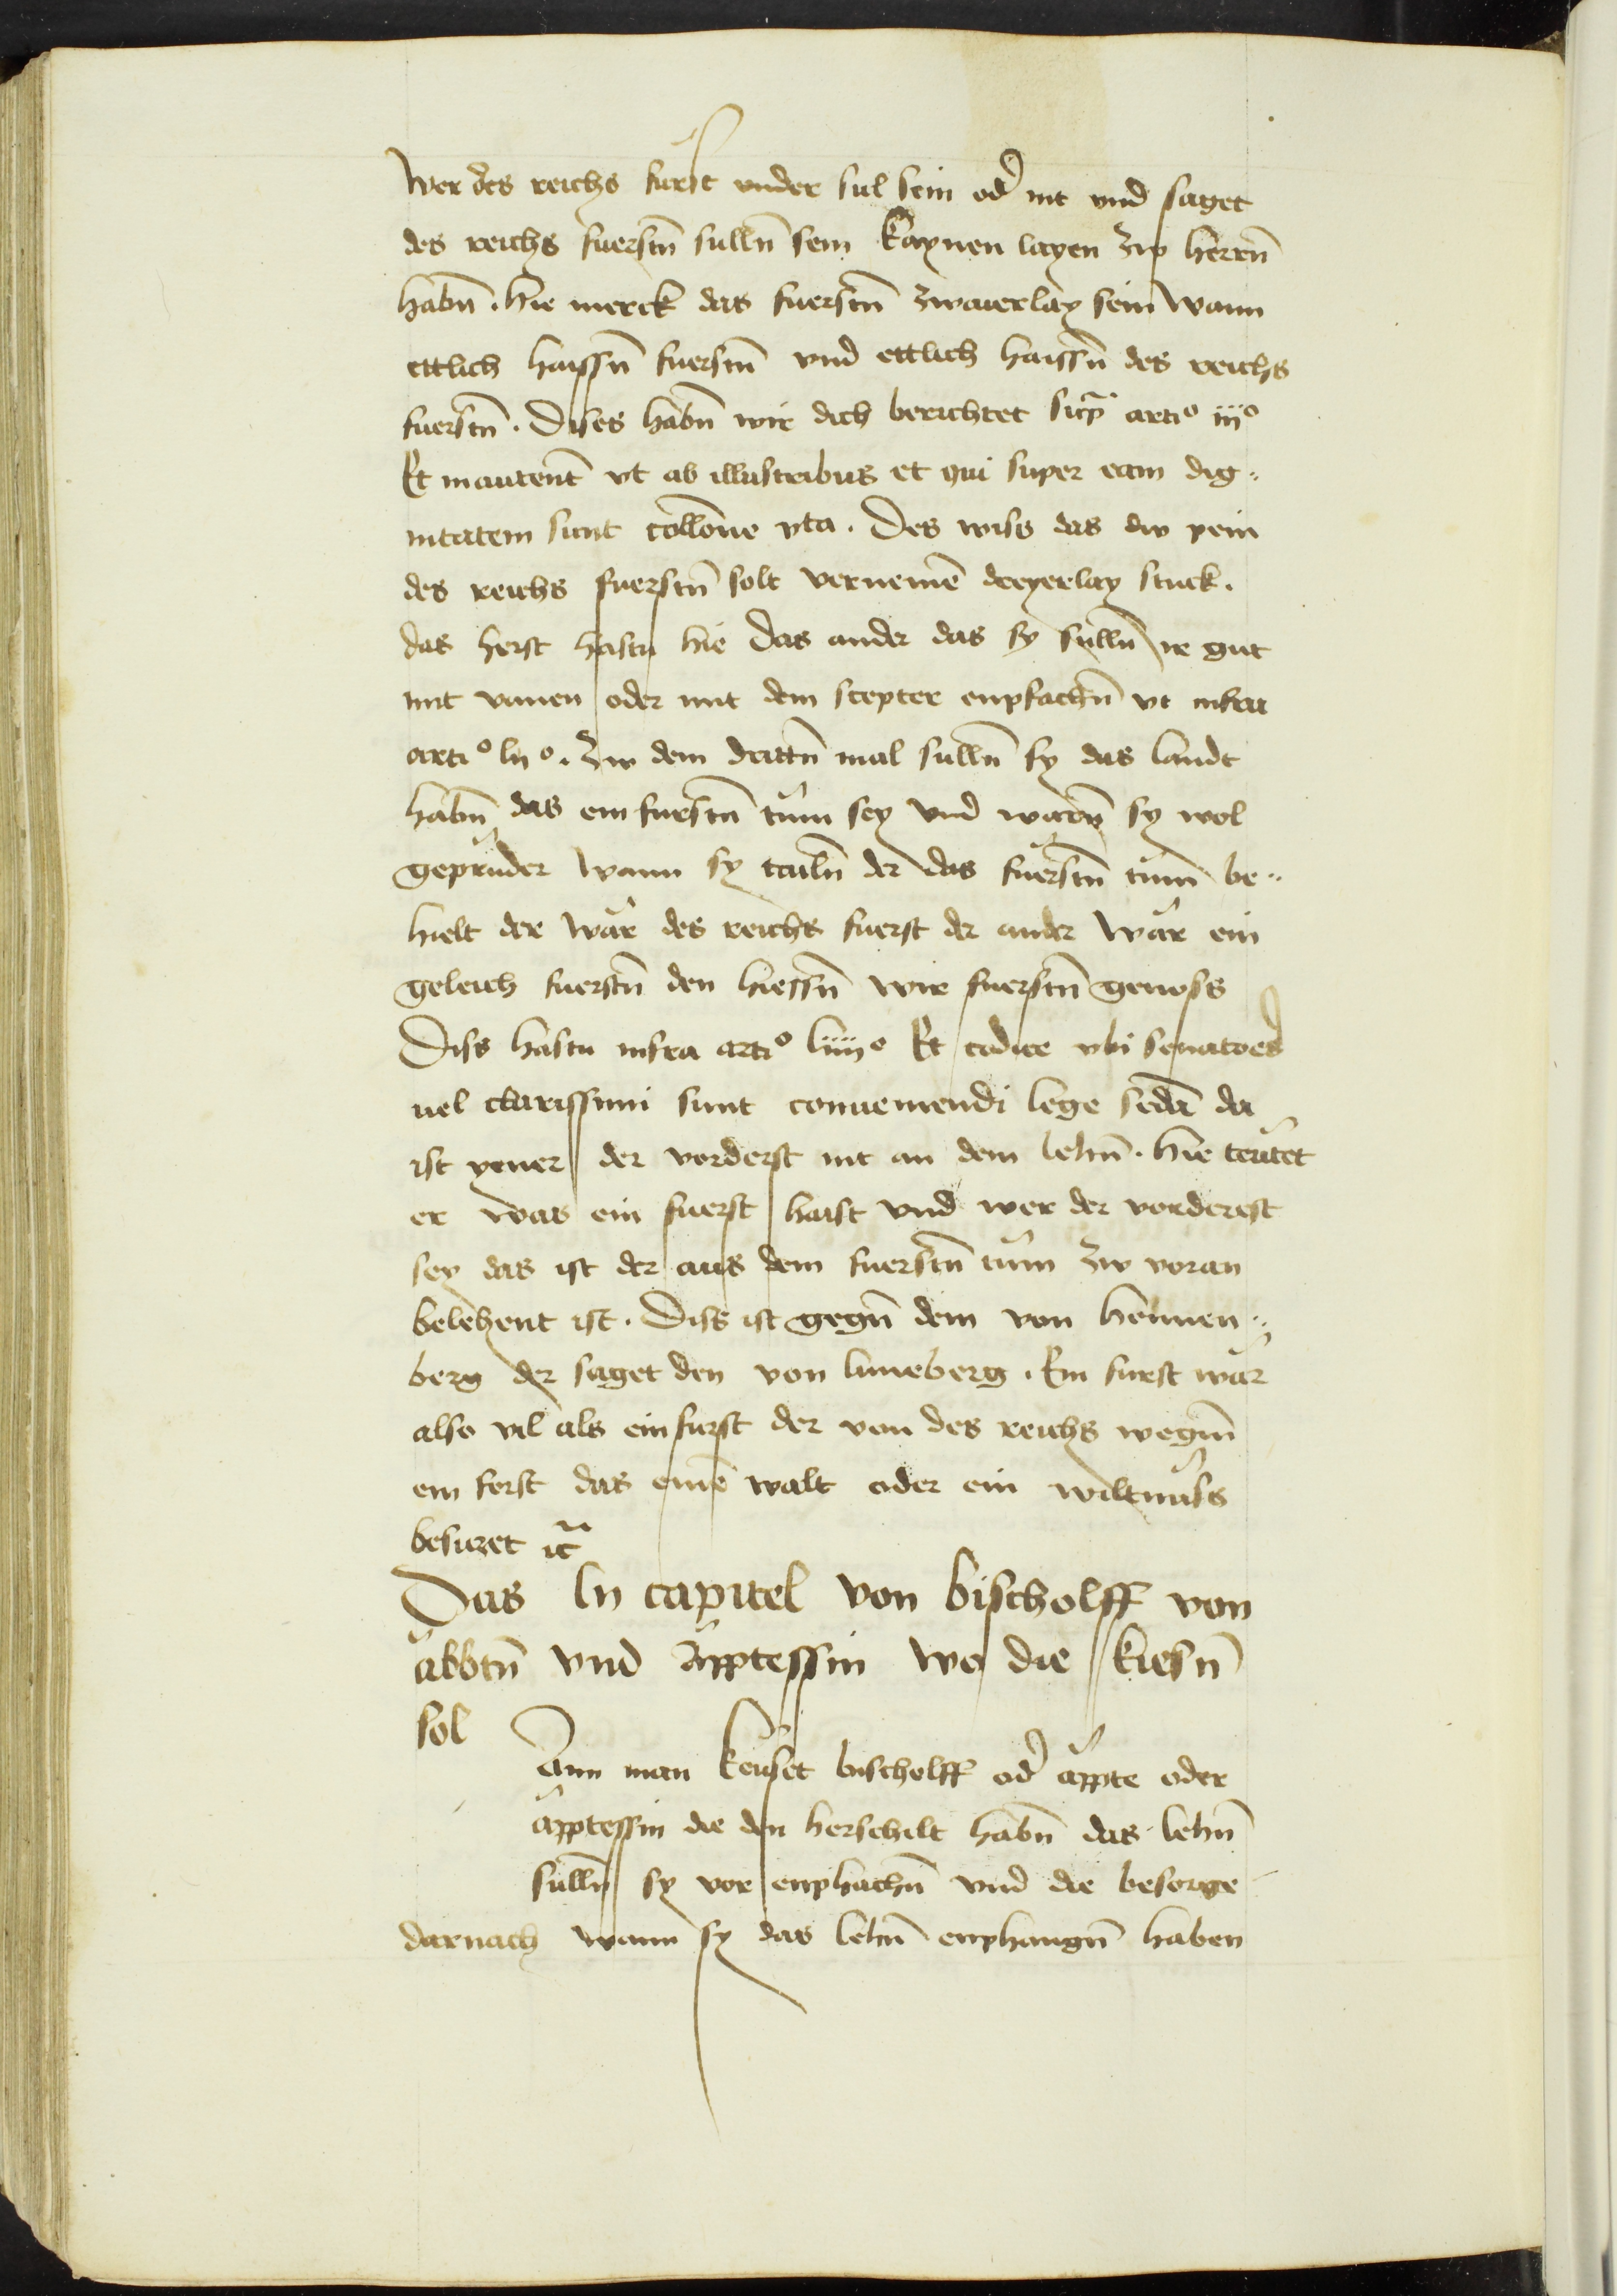 Wer des reichs furst under sul sein od̄ nit vnd saget
des reichs fuerstn̄ sulln̄ sein kaynen layen zw herrn̄
habn̄. hie merck das fuerstn̄ zwaierlay sein wann
ettlich haissn̄ fuerstn̄ vnd ettlich haissn̄ des reichs
fuerstn̄. Dises habn̄ wir dich berichtet sup̄ arti° iij°
Et in autent̄ vt ab illustribus et qui super eam dig¨
nitatem sunt collone vta. Des wiss das dw pein
des reichs fuerstn̄ solt vernemē dreyerlay stuck.
das herst hastu hie das ander das sy sulln̄ ir gut
mit vanen oder mit dem scepter enpfachn̄ vt infra
arti° lij°. Zw dem drittn̄ mal sulln̄ sy das landt
habn̄ das ein furstn̄ tům sey vnd warn̄ sy wol
geprůder wann sy tailn̄ der das fuerstn̄ tům be¨
hielt der wår des reichs fuerst der ander wår ein
geleich fuerstn̄ den hiessn̄ wir fuerstn̄ genoss
Diss hastu infra arti° liiij° Et codice vbi senatoes̄
uel clarissimi sunt conueniendi lege sedā da
ist yener der vorderst nit an dem lehn̄. hie teůtet
er was ein fuerst haist vnd wer der vorderest
sey das ist der aus dem fuerstn̄ tům zw voran
belehent ist. Diss ist gegn̄ dem von hennen¨
berg der saget den von luneberg. Ein furst wår
also vil als ein furst der von des reichs wegnn̄
ein forst das einē walt oder ein wiltnůss
besuret ꝛc̄
Das lij capitel von bischolff von
åbbtn̄ vnd åpptessin wo die kiesn̄
sol
Ann man keuset bischolff od̄ åppte oder
åpptessin die den herschilt habn̄ das lehn̄
sulln̄ sy vor enphachn̄ vnd die besorge
darnach wann sy das lehn̄ enphangn̄ haben